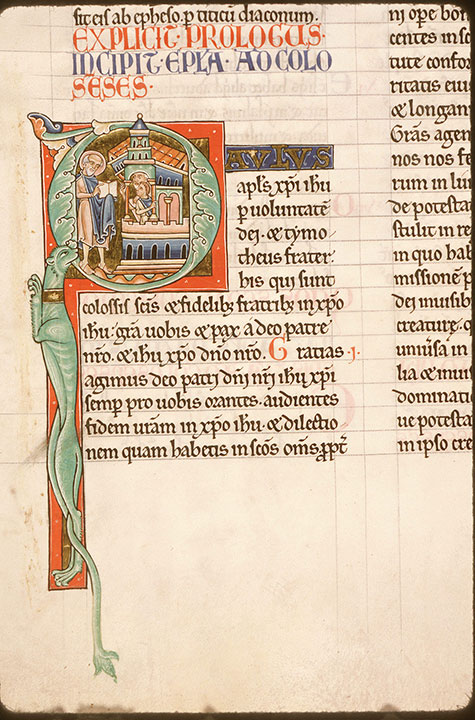 sit eis ab epheso. p titicū diaconum.
EXPLICIT · PROLOGUS ·
INCIPIT · EPLA · AD COLO
SESES ·
PAULUS
apl's xp̄i ihu
p uoluntatē
dei. & tymo
theus frater.
his qui sunt
colossis sc̄is & fidelib; fratrib; in xp̄o
ihu. grā uobis & pax a deo patre
nr̄o. & ihu xp̄o dn̄o nr̄o. Gratias ·1·
agimus deo patri dn̄i nr̄i ihu xp̄i
semp pro uobis orantes. audientes
fidem uram in xp̄o ihu. & dilectio
nem quam habetis in sc̄os om̄s. ꝓpt̄
ni ope bon
centes in sc
tute confor
ritatis eiu
& longan
Grās agen
nos nos fe
rum in lu
de potesta
stulit in re
in quo hab
missionē p
dei inuisib
creature. q
uniuersa in
lia & inuis
dominatic
ue potesta
in ipso cre